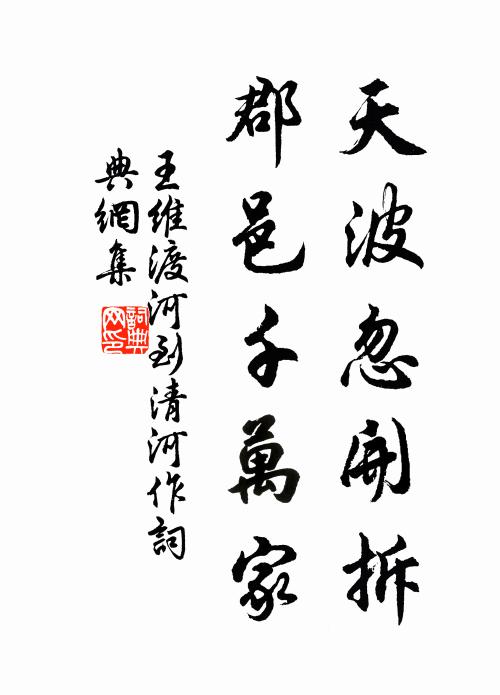 天波忽開拆
郡邑千萬家
王維渡河到清河作詞
典網集
詞典
网印